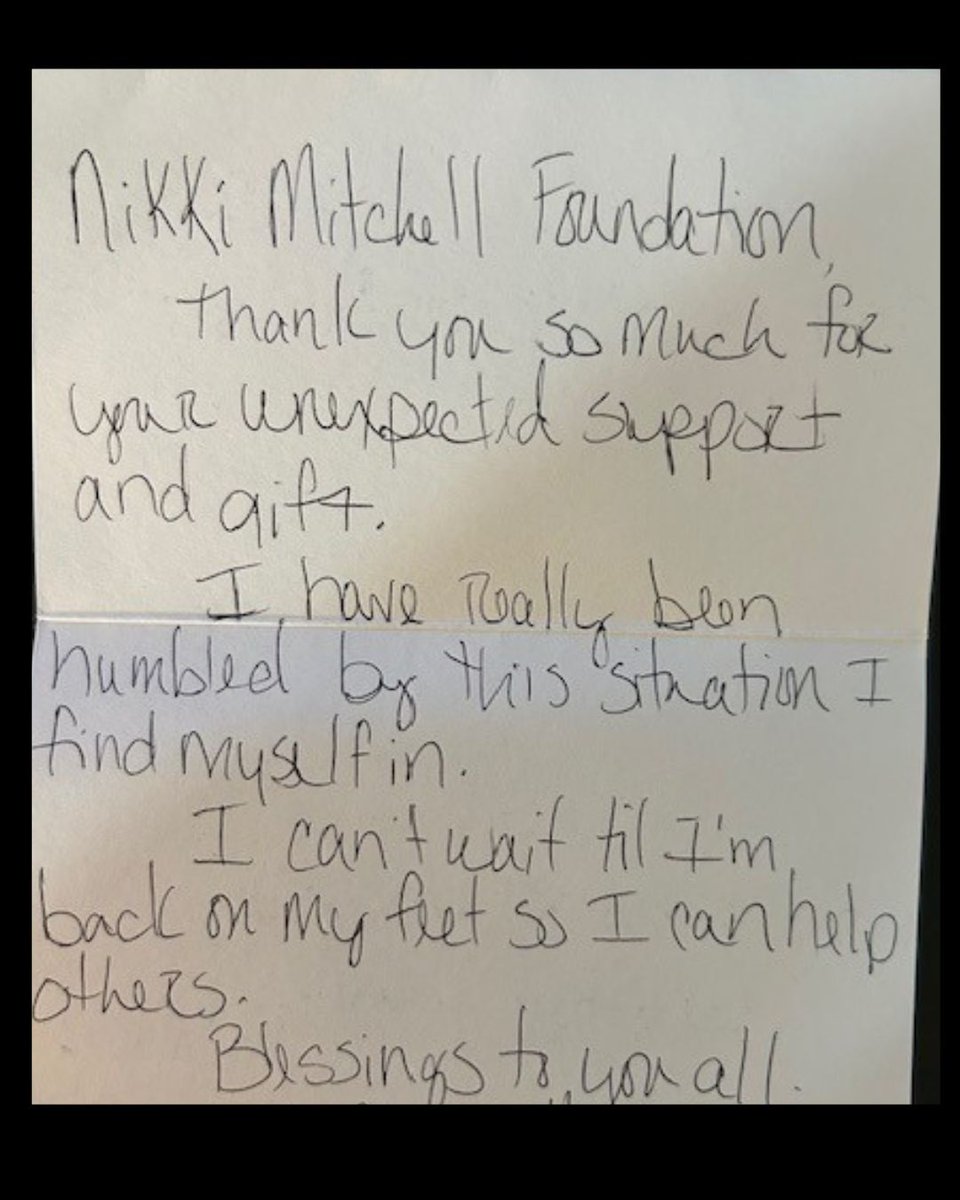 Nikki Mitchell Foundation,
Thank you so much for
your unexpected support
and gift.
I have really been
humbled by this situation I
find myself in.
I can't wait til I'm
back on my feet so I can help
others.
Blessings to you all.